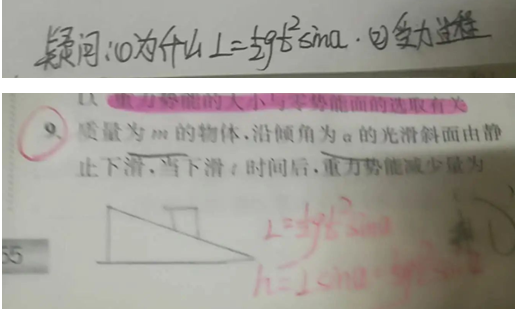 疑问:①为什么 L=½gt²sina. ②受力过程
以 重力势能的大小与零势能面的选取有关
9. 质量为 m 的物体,沿倾角为 a 的光滑斜面由静
止下滑,当下滑 t 时间后,重力势能减少量为
L=½gt²sina
55
h=L sina=